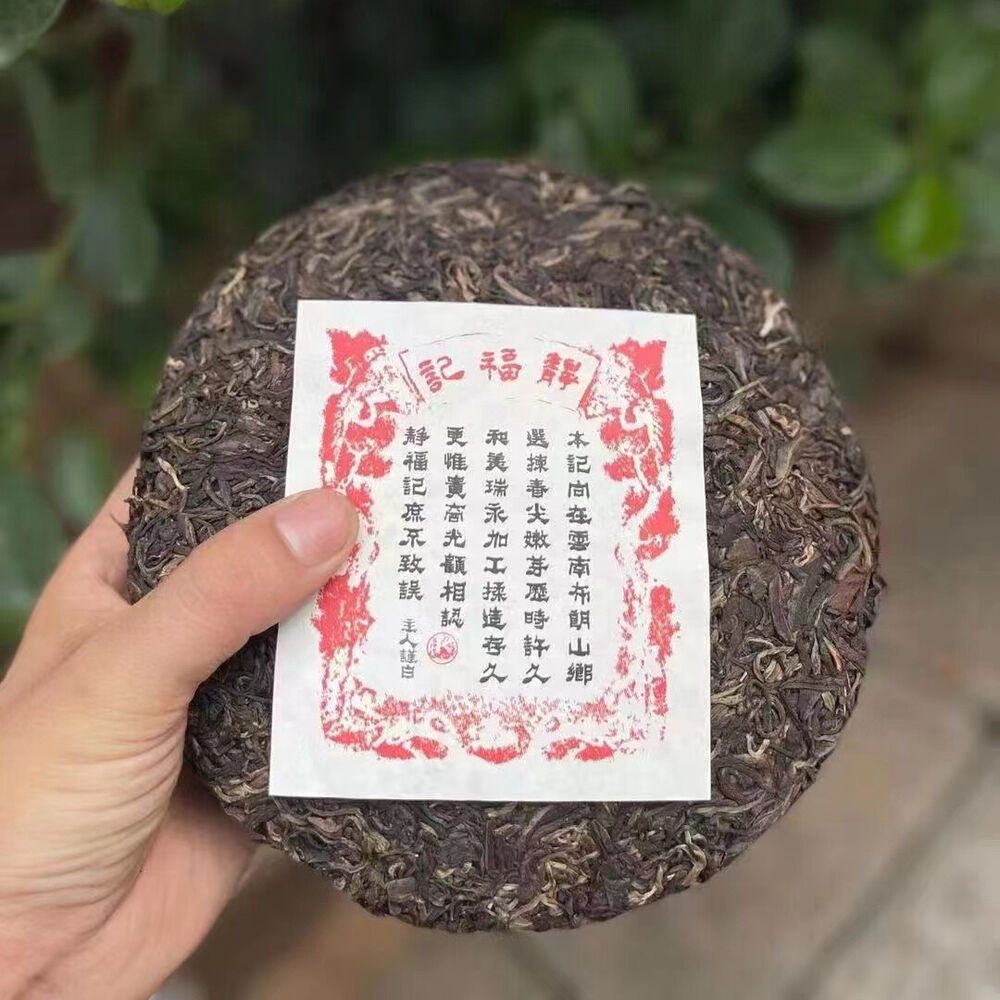 靜福記
本記向在雲南布朗山鄉
選揀春尖嫩芽歷時許久
和美瑞永加工揉造存久
更惟貴商光顧相認
靜福記庶不致誤
主人謹白